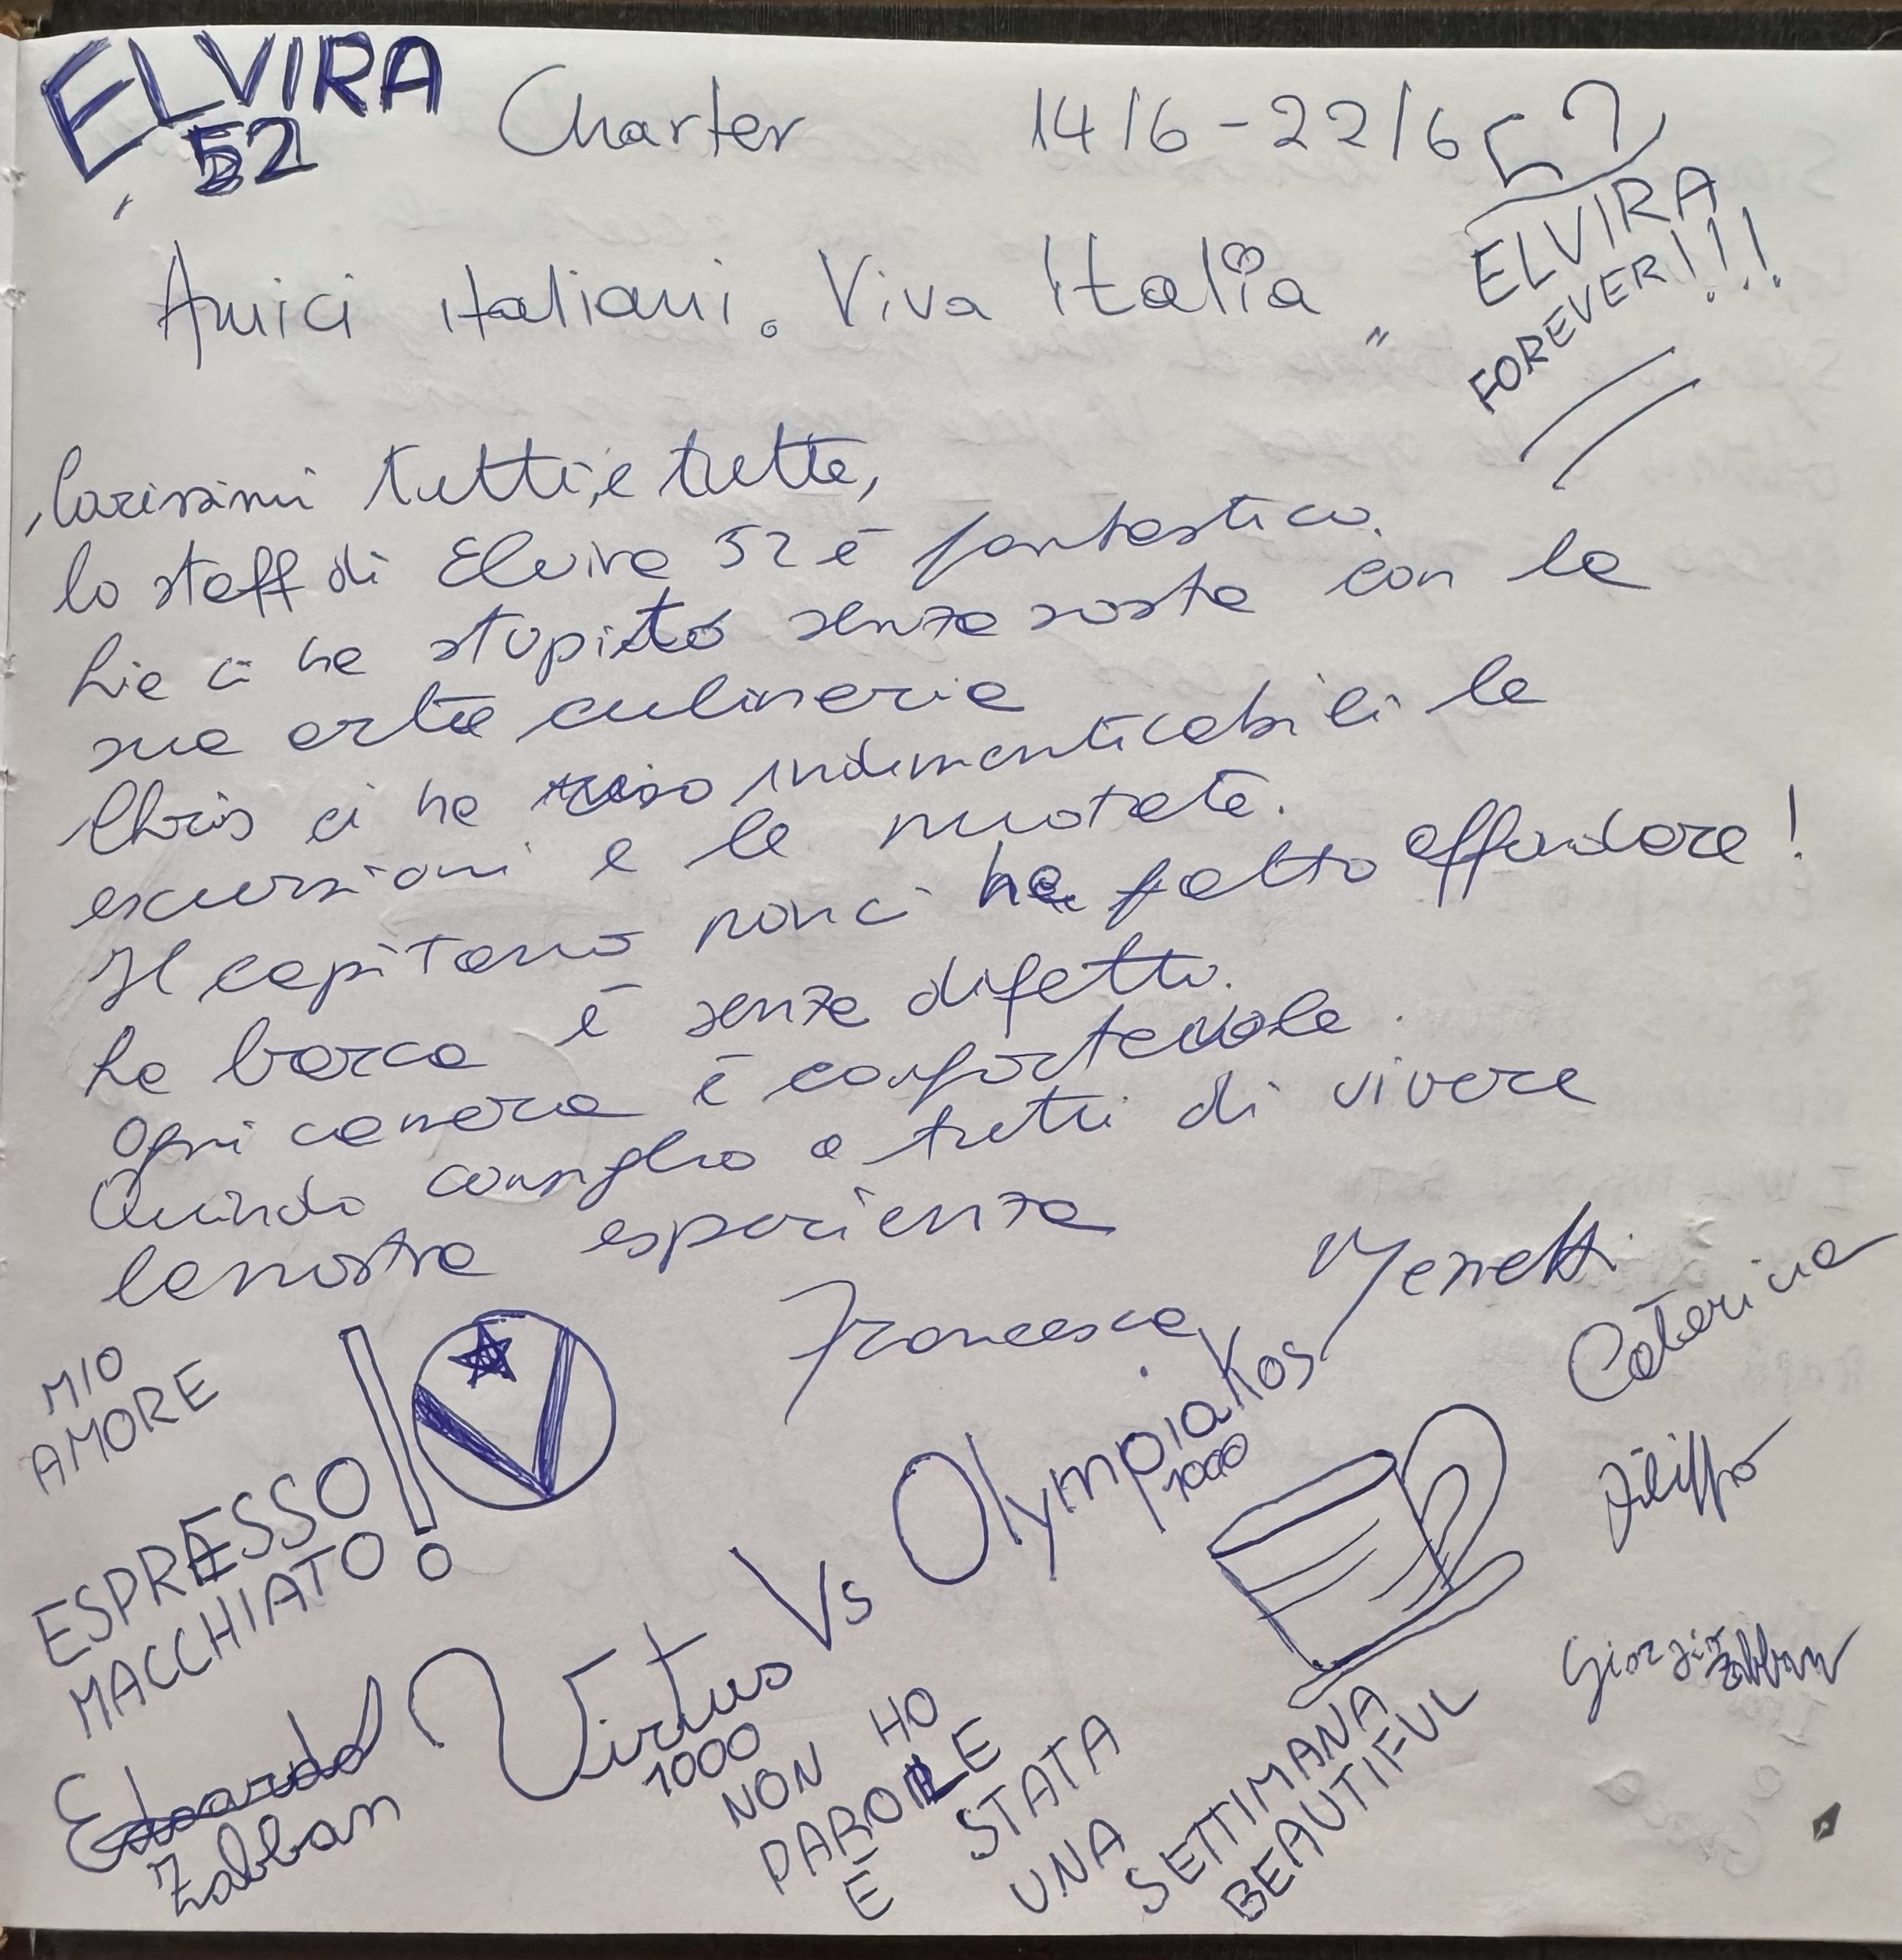 ELVIRA
52
Charter 14/6-22/6
52
ELVIRA
FOREVER!!!
Amici italiani. Viva Italia
Carissimi tutti, e tutte,
lo staff di Elvira 52 è fantastico.
Lia ci ha stupito senza sosta con la
sua arte culinaria
Chris ci ha reso indimenticabili le
escursioni e le nuotate.
Il capitano non ci ha fatto affondare!
La barca è senza difetto.
Ogni camera è confortevole.
Quindi consiglio a tutti di vivere
la nostra esperienza
Francesca
Caterina
Filippo
Giorgia Zabban
MIO
AMORE
ESPRESSO
MACCHIATO!
V
Virtus Vs Olympiakos
1000
1000
Edoardo
Zabban
NON HO
PAROLE
È STATA
UNA
SETTIMANA
BEAUTIFUL